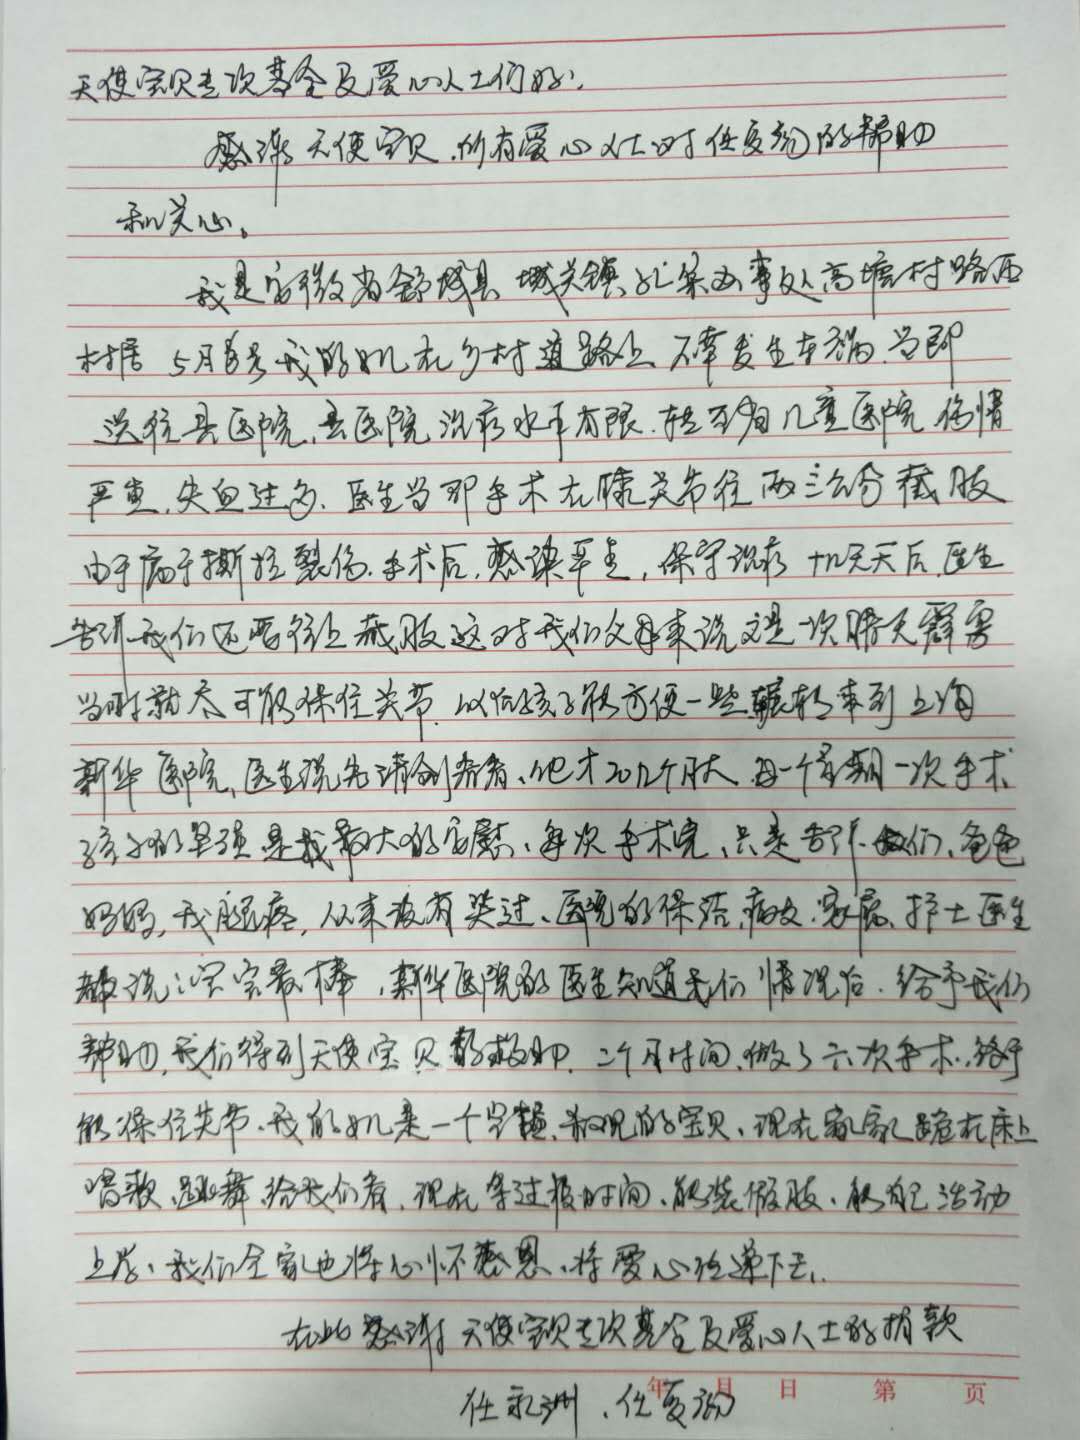 天使宝贝专项基金及爱心人士们好,
感谢天使宝贝.所有爱心人士对任夏的帮助
和关心。
我是安徽省舒城县城关镇办事处高塘村路西
村居 5月 号我的女儿在乡村道路上不幸发生车祸.当即
送往县医院,县医院治疗水平有限.转至省儿童医院伤情
严重,失血过多.医生当即手术在膝关节往两三公分截肢
由于属于撕拉裂伤.手术后,感染严重,保守治疗十几天后.医生
告诉我们还要往上截肢这对我们父母来说又是一次晴天霹雳
当时就尽可能保住关节.以后孩子能方便一些辗转来到上海
新华医院,医生说先清创养着、他才20几个月大.每一个星期一次手术.
孩子的坚强是我最大的安慰、每次手术完、只是告诉我们、爸爸
妈妈,我腿疼,从来没有哭过、医院的保洁,病友.家属、护士医生
都说:宝宝最棒,新华医院的医生知道我们情况后.给予我们
帮助,我们得到天使宝贝的救助.二个月时间.做了六次手术.终于
能保住关节、我的女儿是一个坚强、乐观的宝贝、现在家家跪在床上
唱歌.跳舞.给我们看.现在等过段时间、能装假肢、能自己活动
上学、我们全家也将心怀感恩.将爱心传递下去,.
在此感谢天使宝贝专项基金及爱心人士的捐款
年 月 日 第 页
任永洲、任夏